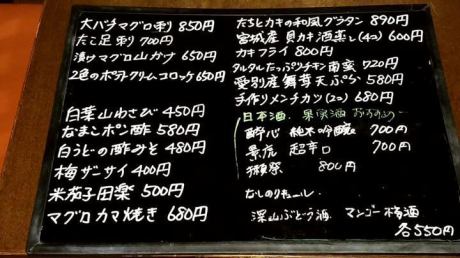 大バチマグロ刺 850円
たこ足刺 700円
漬けマグロ山かけ 650円
2色のポテトクリームコロッケ 650円
白葉山わさび 450円
なまこポン酢 580円
白うどの酢みそ 480円
梅ザーサイ 400円
米茄子田楽 500円
マグロカマ焼き 680円
たちとカキの和風グラタン 890円
宮城産 貝カキ酒蒸し(4コ) 600円
カキフライ 800円
タルタルたっぷりチキン南蛮 720円
愛別産 舞茸天ぷら 580円
手作りメンチカツ(2コ) 680円
日本酒 果実酒 おすすめ
酔心 純米吟醸 700円
景虎 超辛口 700円
獺祭 800円
なしのリキュール
深山ぶどう酒 マンゴー梅酒
各550円